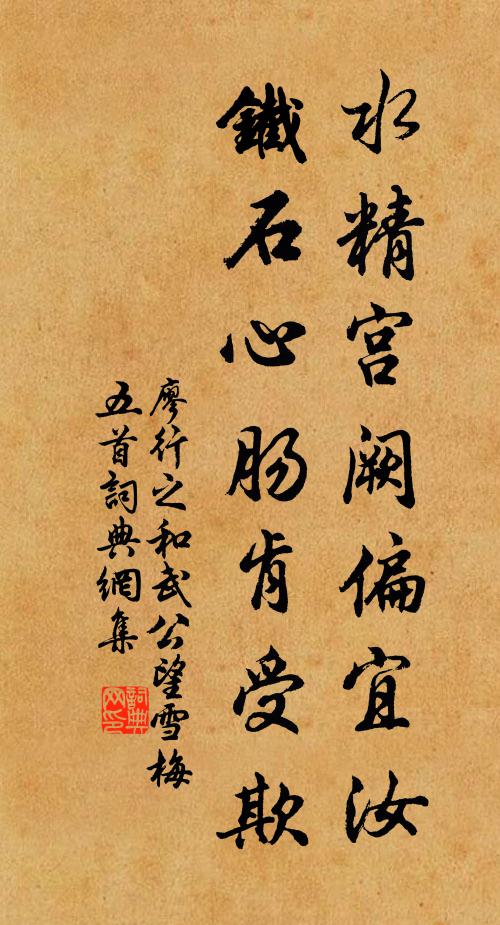 水精宫阙偏宜汝
鐵石心肠肯受欺
廖行之和武公望雪梅
五首詞典網集
詞典网印